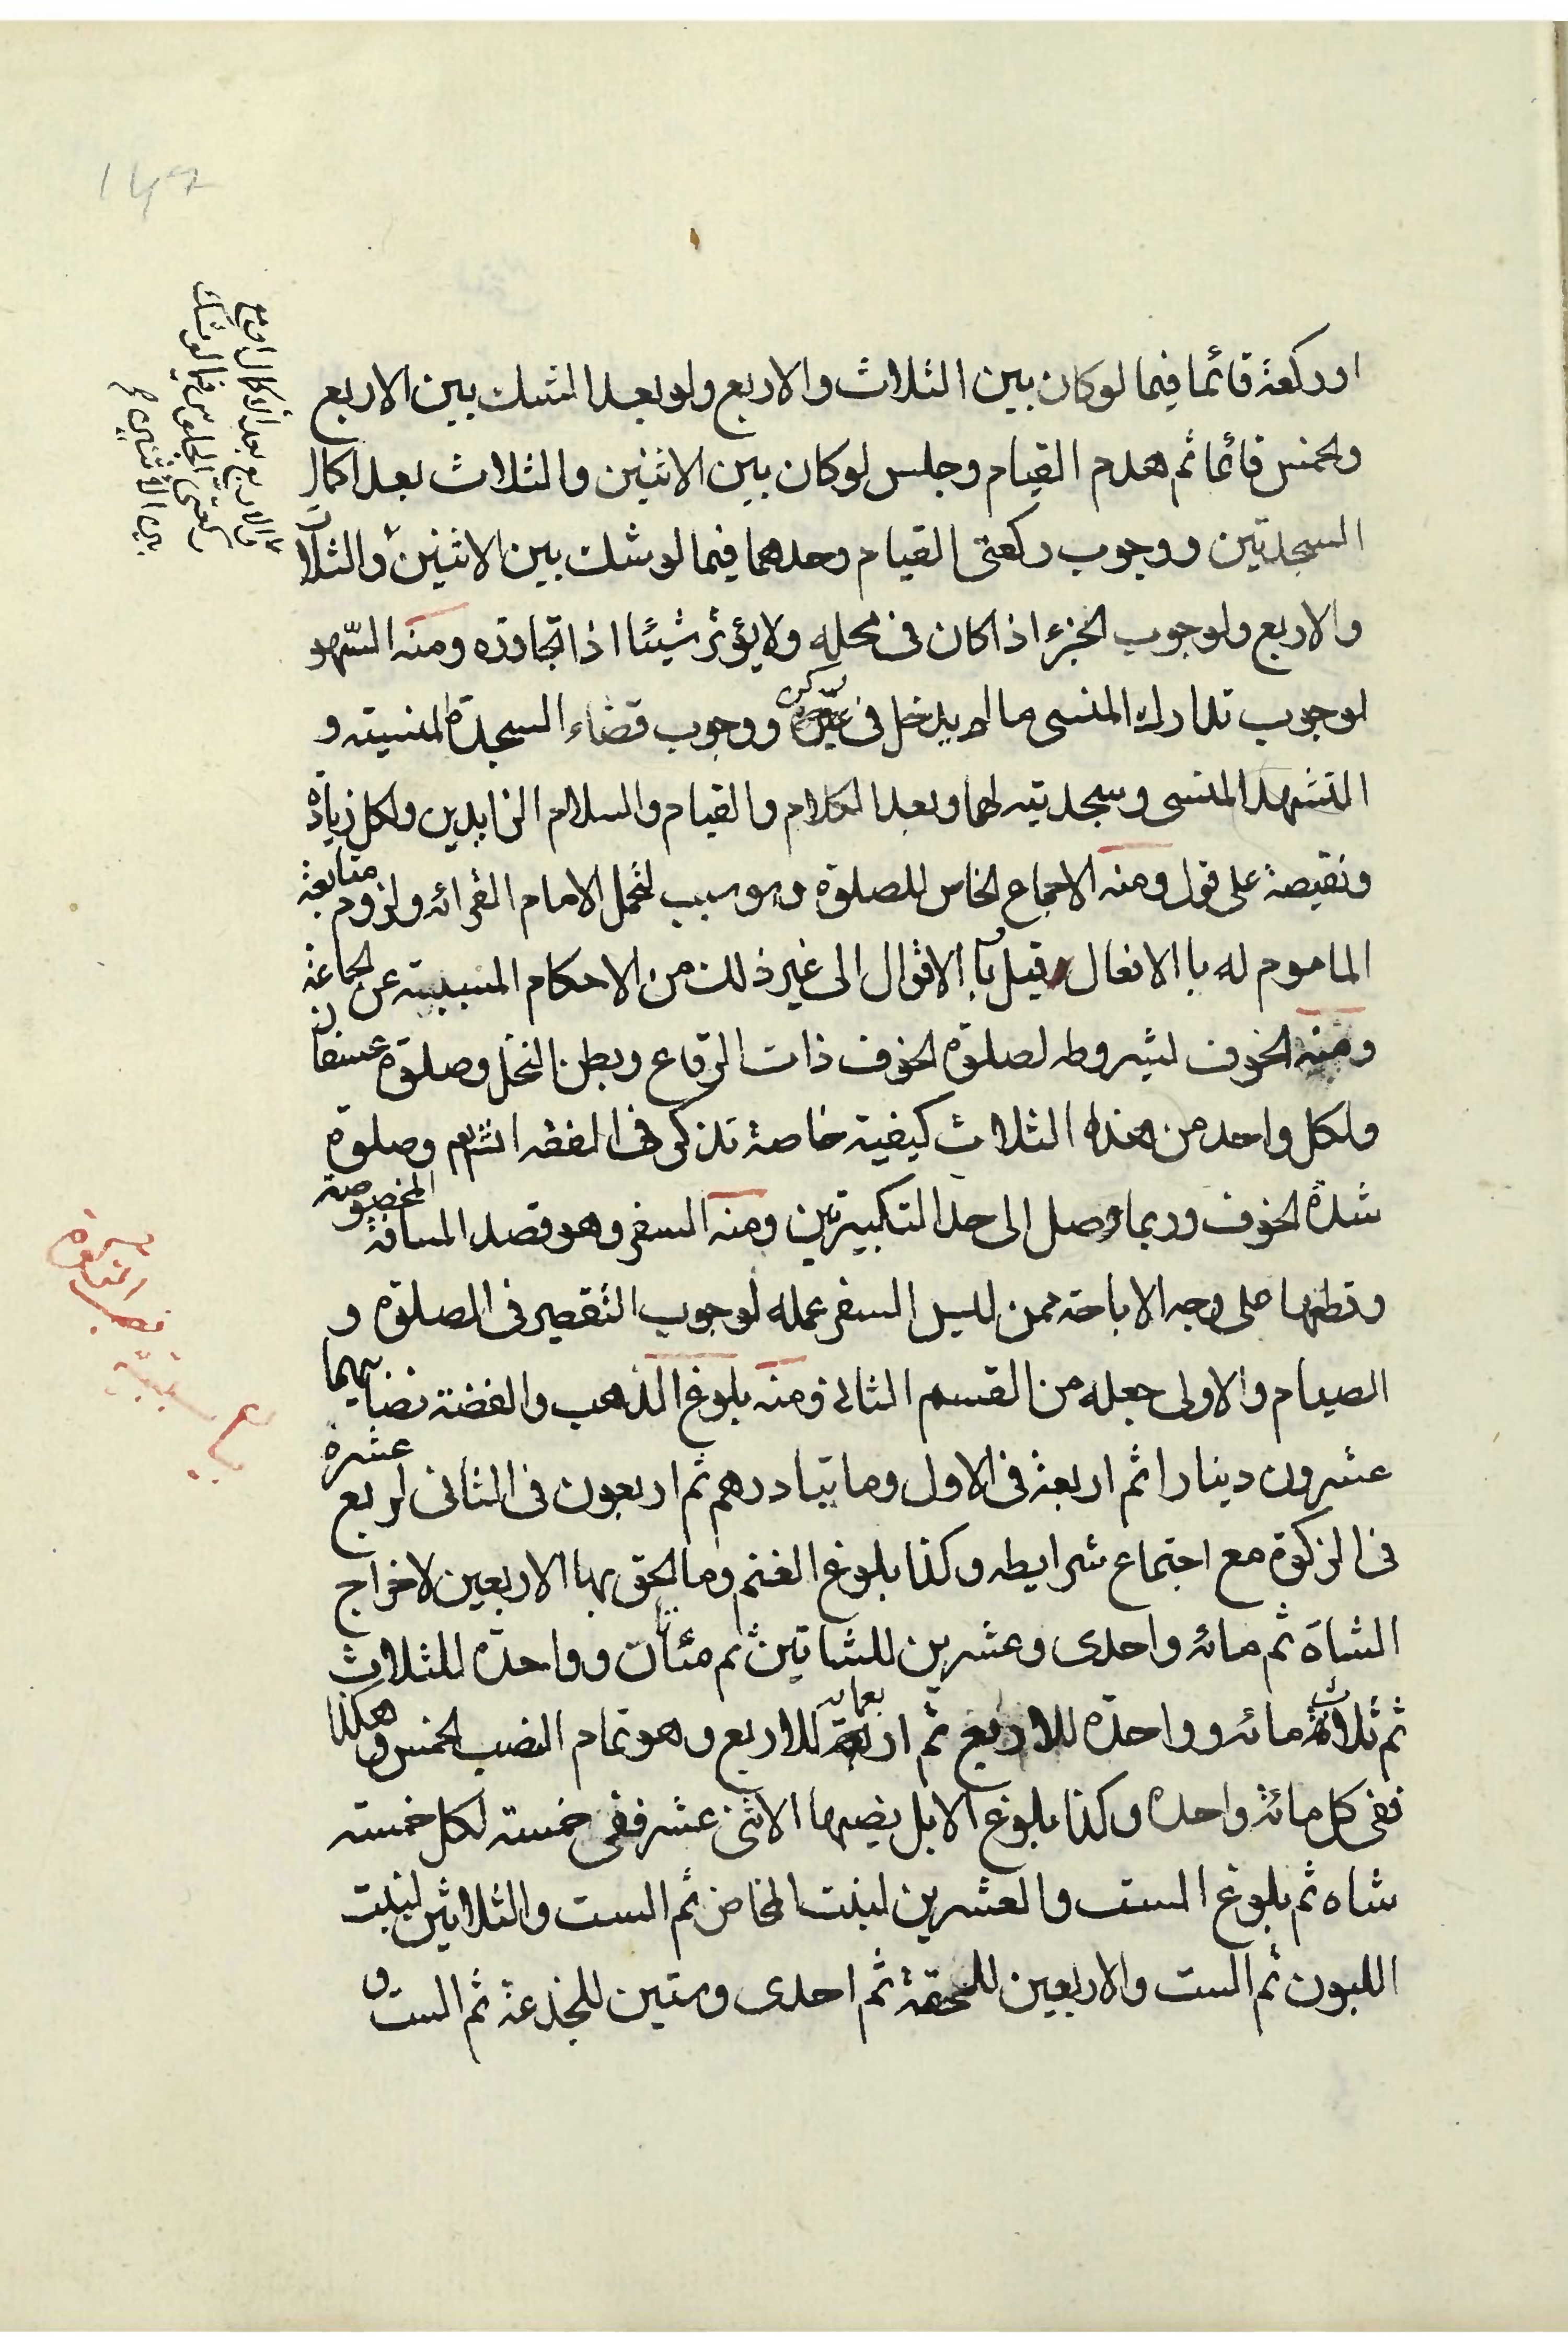 او ركعة قائما فيما لو كان بين الثلاث والاربع ولو بعد الشك بين الاربع
والخمس قائما ثم هدم القيام وجلس لو كان بين الاثنين والثلاث بعد اكمال
السجدتين ووجوب ركعتى القيام وحدهما فيما لو شك بين الاثنين والثلاث
والاربع ولوجوب الجزء اذا كان فى محله ولا يؤثر شيئا اذا تجاوزه ومنه السّهو
لوجوب تدارك المنسى ما لم يدخل فى ركن ووجوب قضاء السجدة المنسيته و
التشهد المنسى وسجدتيه لهما وبعد الكلام والقيام والسلام الزايدين ولكل زيادة
ونقيصة على قول ومنه الاجماع الخاص للصلوة وهو سبب لتحمل الامام القرائه ولزوم متابعة
الماموم له با الافعال وقيل با الاقوال الى غير ذلك من الاحكام المسببيته عن الجماعة
ومنه الخوف لشروطه لصلوة الخوف ذات الرقاع وبطن النخل وصلوة عسفان
ولكل واحد من هذه الثلاث كيفية خاصة تذكر فى الفقه انشم وصلوة
شدة الخوف وربما وصل الى حد التكبيرتين ومنه السفر وهو قصد المسافة المخصوصة
وقطعها على وجه الاباحة ممن ليس السفر عمله لوجوب التقصير فى الصلوة و
الصيام والاولى جعله من القسم الثانى ومنه بلوغ الذهب والفضة نصابهما
عشرون دينارا ثم اربعة فى الاول وماتيا درهم ثم اربعون فى الثانى لربع عشره
فى الزكوة مع اجتماع شرايطه وكذا بلوغ الغنم وما لحق بها الاربعين لاخراج
الشاة ثم مائه واحدى وعشرين للشاتين ثم مئتان وواحدة للثلاث
ثم ثلاث مائه وواحدة للاربع ثم اربعمائه للاربع وهو تمام النصب الخمس وهكذا
ففى كل مائة واحده وكذا بلوغ الابل نصبها الاثنى عشر ففى خمسته لكل خمسته
شاه ثم بلوغ الست والعشرين لبنت المخاض ثم الست والثلاثين لبنت
اللبون ثم الست والاربعين للحقة ثم احدى وستين للجذعة ثم الست و
والاربع بعد اكمال
ركعتى الجلوس فيما لو شك
بين الاثنين